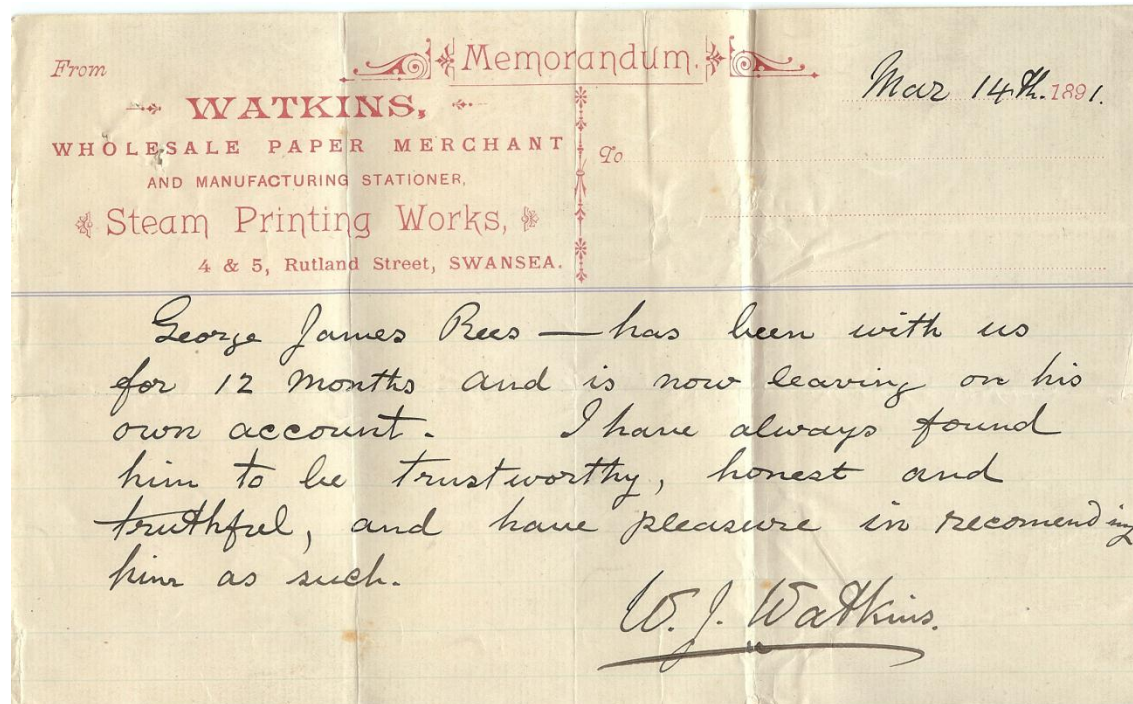 Memorandum.
From
Mar 14th. 1891.
WATKINS,
WHOLESALE PAPER MERCHANT
AND MANUFACTURING STATIONER,
Steam Printing Works,
4 & 5, Rutland Street, SWANSEA.
To
George James Rees — has been with us
for 12 months and is now leaving on his
own account. I have always found
him to be trustworthy, honest and
truthful, and have pleasure in recomending
him as such.
W. J. Watkins.